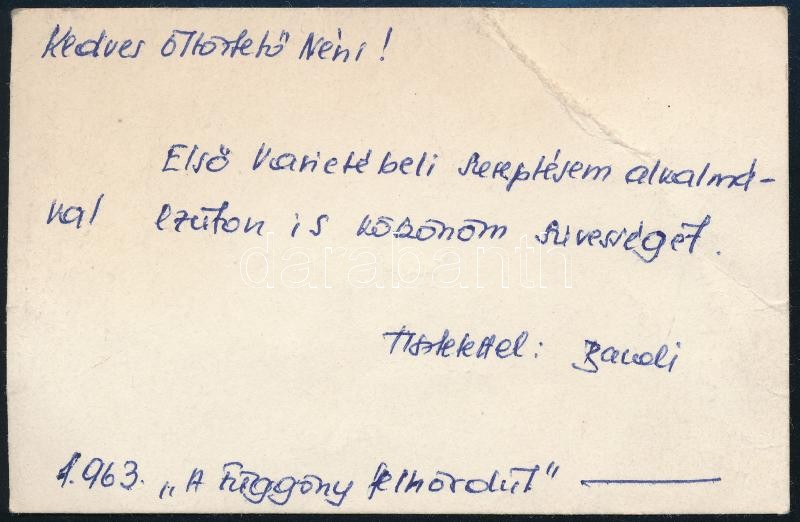 Kedves Öltöztető Néni!
Első Varietébeli szereplésem alkalmá-
val ezúton is köszönöm szívességét.
darabanth
Tisztelettel: Bandi
1.963. „A Függöny felhördül"